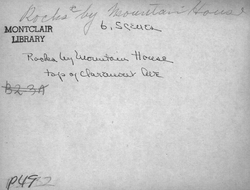 Rocks by Mountain House
MONTCLAIR
LIBRARY
Rocks by Mountain House
top of Claremont Ave
B23A
P49